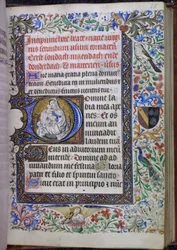 Incipiunt hore beate marie virgi
nis secundum usum romanum
Ave maria gratia plena dominus
tecum Benedicta tu in mulieribus
et benedictus fructus ventris tui
Domine la
bia mea ape
ries Et os
meum an
nunciabit
laudem tua
Deus in adiutorium meu
intende Domine ad ad
iuvandum me festina Gloria
patri et filio et spiritui sancto
Sicut erat in principio et nuc